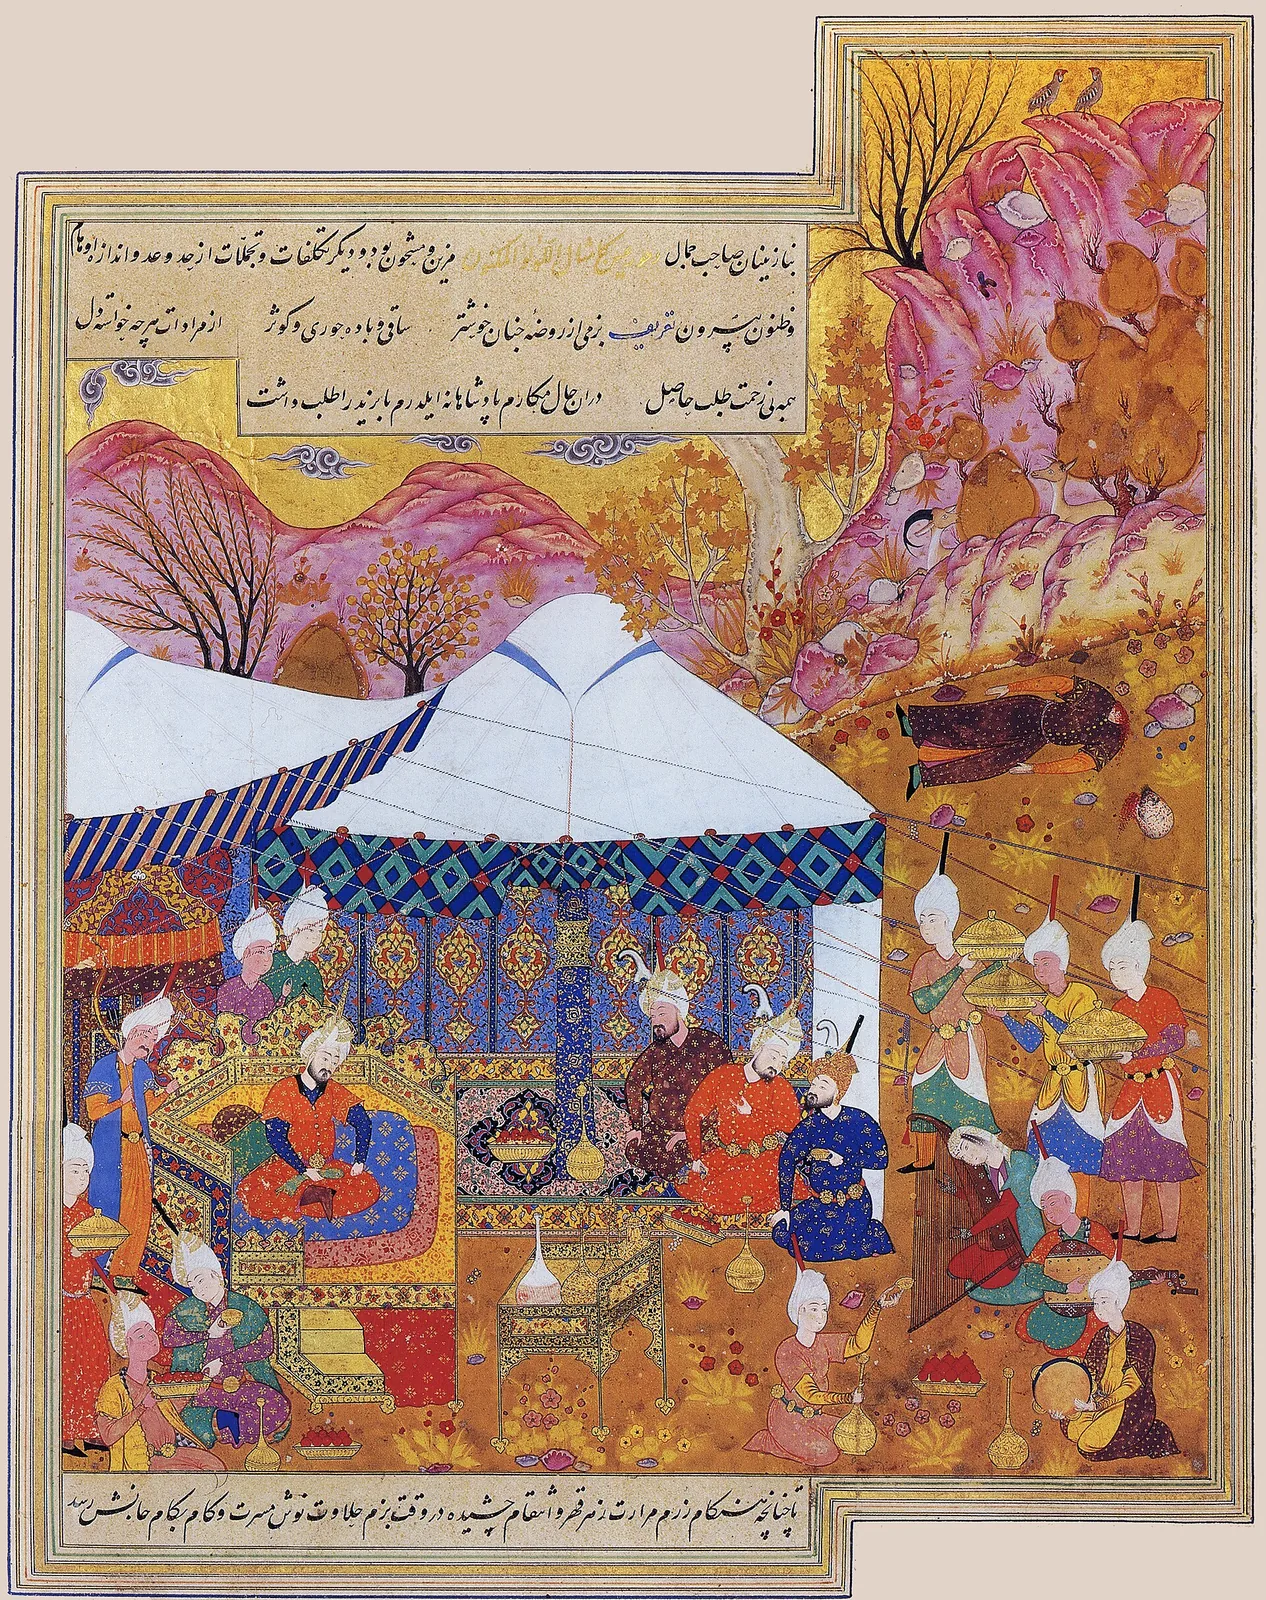 نازنینان صاحب جمال مزین و مشحون بود و دیگر تکلفات و تجملات از حد و عد و اندازه اوهام
و ظنون بیرون تعریف بزمی از روضهٔ جنان خوشتر ساقی و باده حوری و کوثر از مرادات هر چه خواسته دل
همه بی زحمت طلب حاصل در آن حال مکارم پادشاهانه ایلدرم بایزید را طلب داشت
تا چنانچه هنگام رزم مرارت زهر قهر و انتقام چشیده در وقت بزم حلاوت نوش مسرت و کام بکام جانش رسد